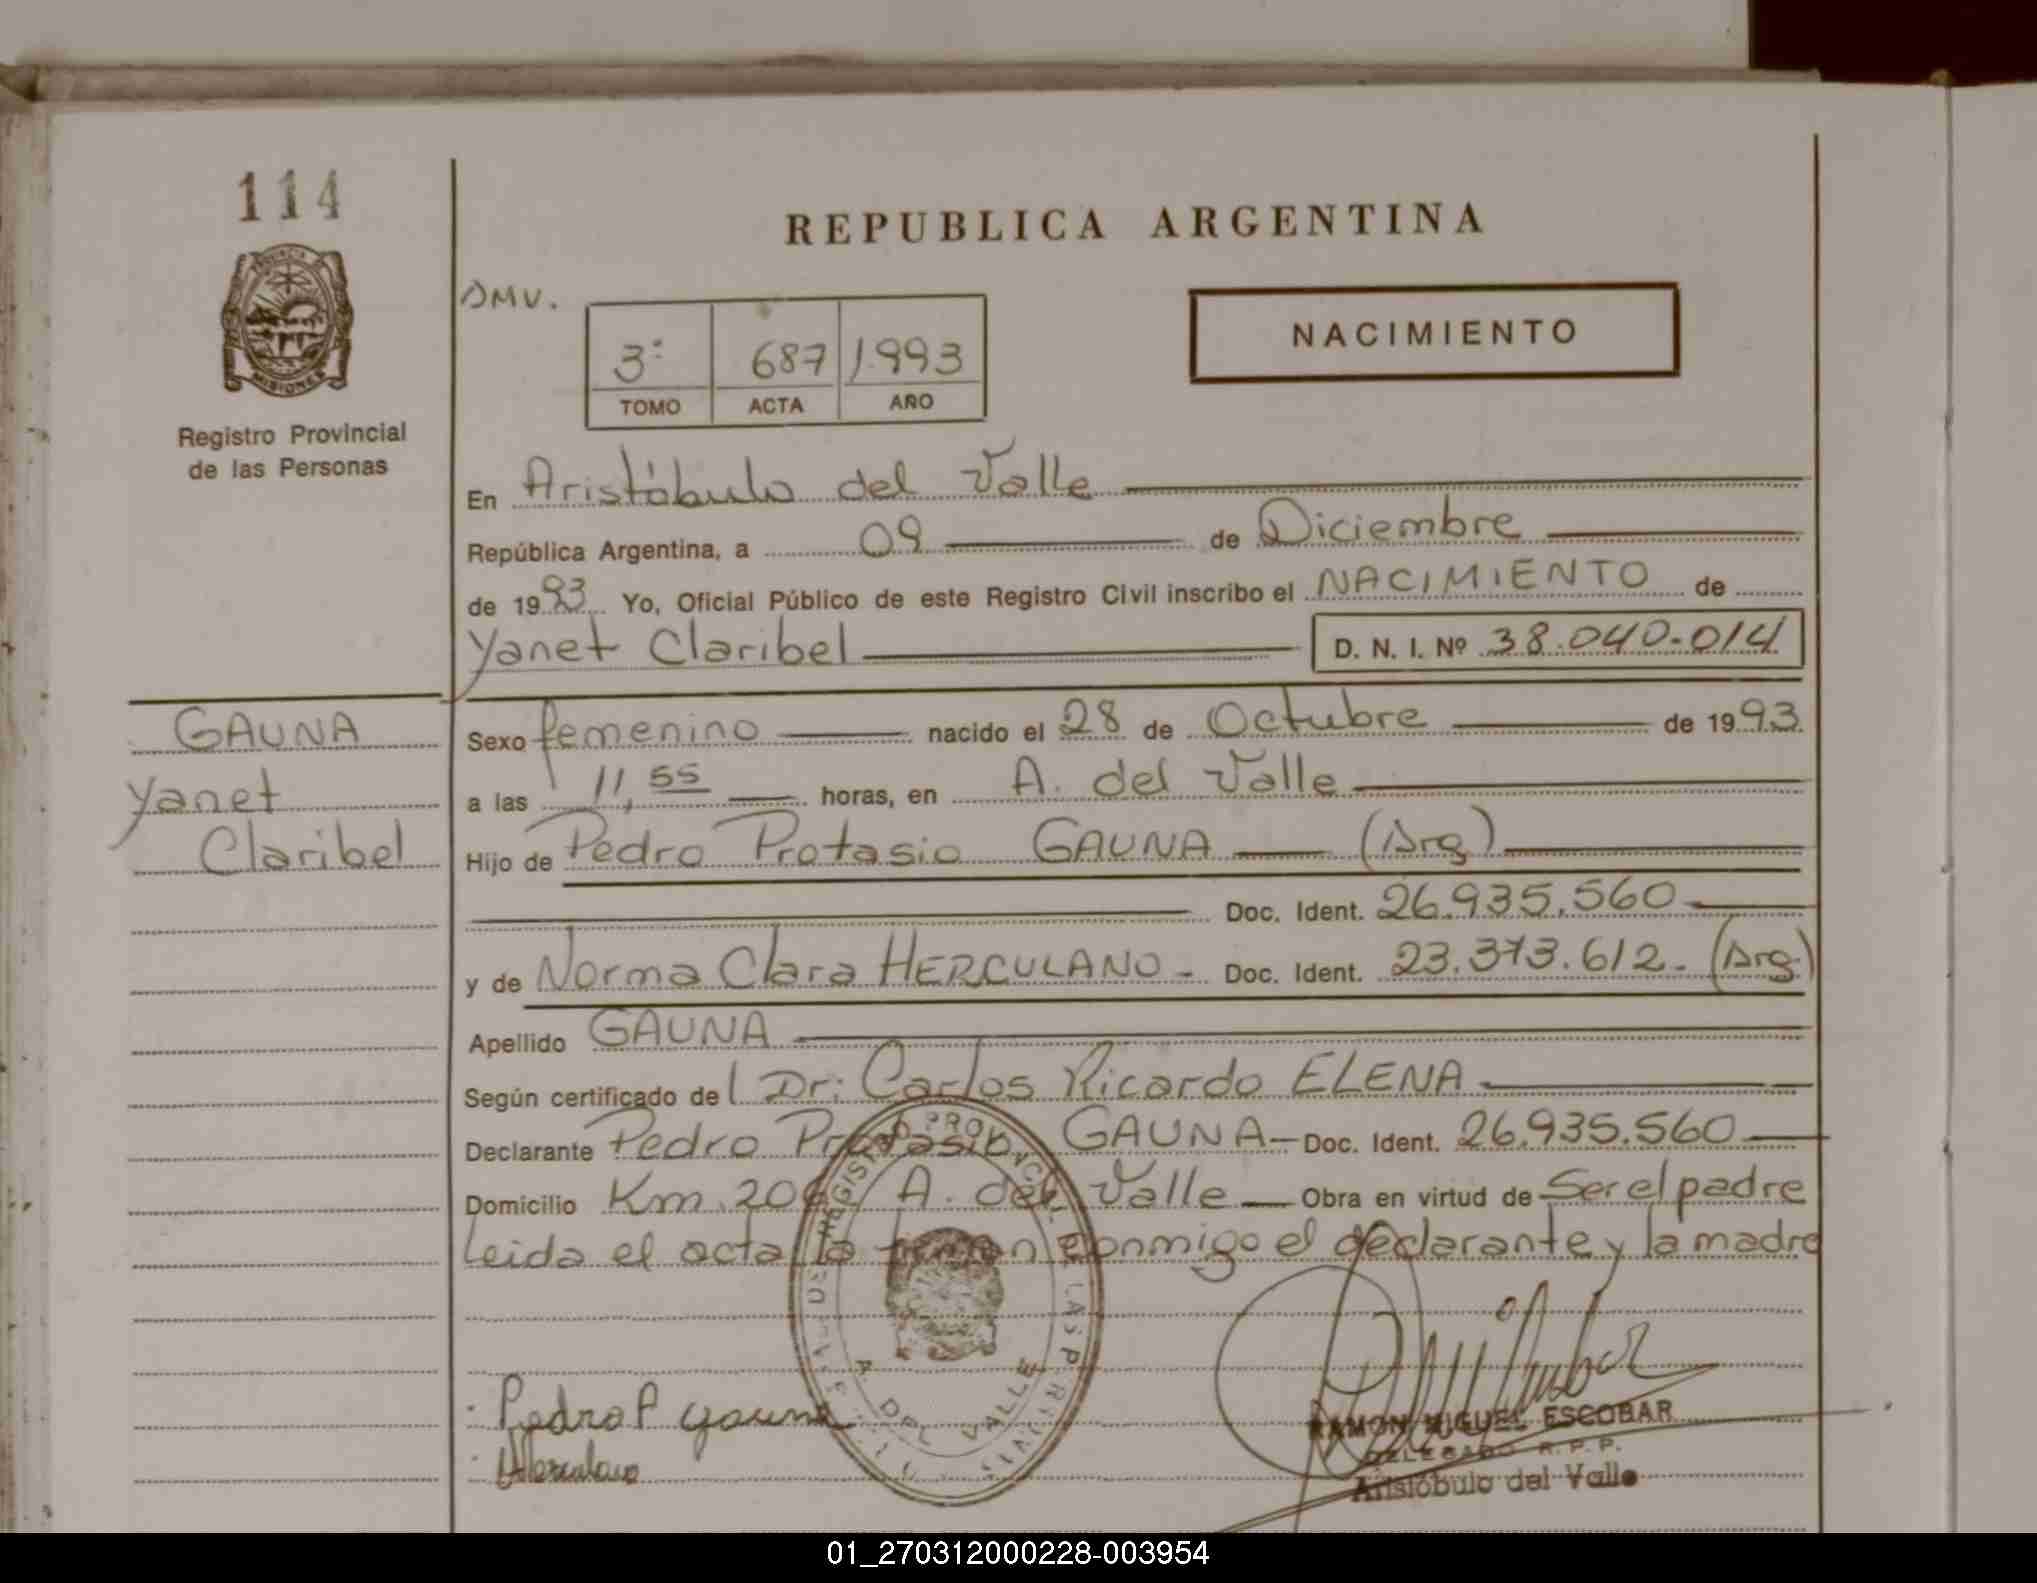 114
REPUBLICA ARGENTINA
MISIONES
Registro Provincial
de las Personas
3º 687 1.993
TOMO ACTA AÑO
NACIMIENTO
En Aristóbulo del Valle
República Argentina, a 09 de Diciembre
de 1993 Yo, Oficial Público de este Registro Civil inscribo el NACIMIENTO de
Yanet Claribel D. N. I. Nº 38.040.014
GAUNA
Yanet
Claribel
Sexo femenino nacido el 28 de Octubre de 1993
a las 11,55 horas, en A. del Valle
Hijo de Pedro Protasio GAUNA (Arg)
Doc. Ident. 26.935.560
y de Norma Clara HERCULANO - Doc. Ident. 23.373.612. (Arg)
Apellido GAUNA
Según certificado del Dr: Carlos Ricardo ELENA
Declarante Pedro Protasio GAUNA- Doc. Ident. 26.935.560
Domicilio Km. 206 A. del Valle Obra en virtud de Ser el padre
Leida el acta la firman conmigo el declarante y la madre
A. DEL VALLE
Pedro P Gauna
Herculano
RAMON MIGUEL ESCOBAR
DELEGADO R. P. P.
Aristóbulo del Valle
01_270312000228-003954